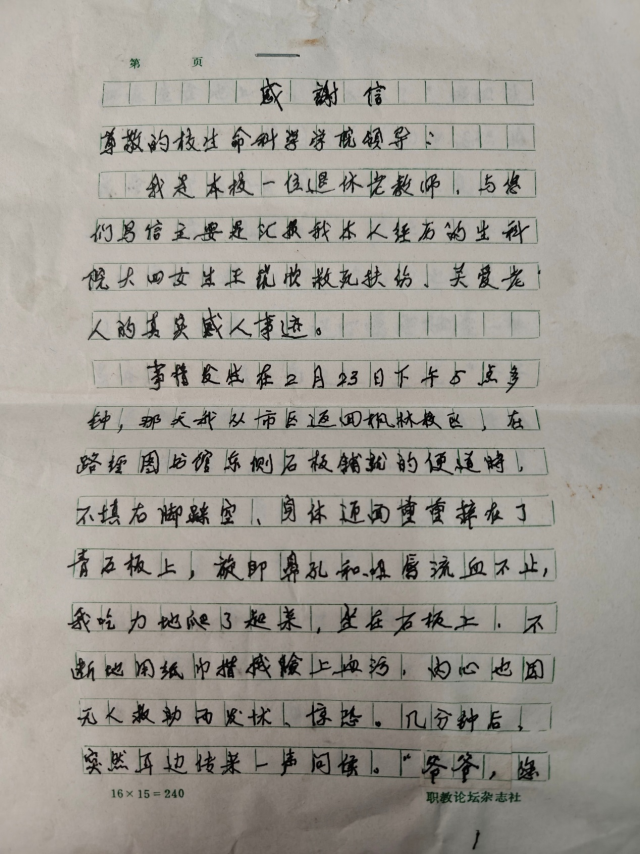 第 页
感謝信
尊敬的校生命科学学院领导：
我是本校一位退休老教师，与您
们写信主要是汇报我本人经历的生科
院大四女生王 救死扶伤、关爱老
人的真实感人事迹。
事情发生在2月23日下午5点多
钟，那天我从市区返回枫林校区，在
路经图书馆东侧石板铺就的便道时，
不慎右脚踩空、身体迎面重重摔在了
青石板上，旋即鼻孔和嘴唇流血不止，
我吃力地爬了起来，坐在石板上．不
断地用纸巾揩拭脸上血污，内心也因
无人救助而发怵、惊恐。几分钟后，
突然耳边传来一声问候。“爷爷，您
16×15=240 职教论坛杂志社
1